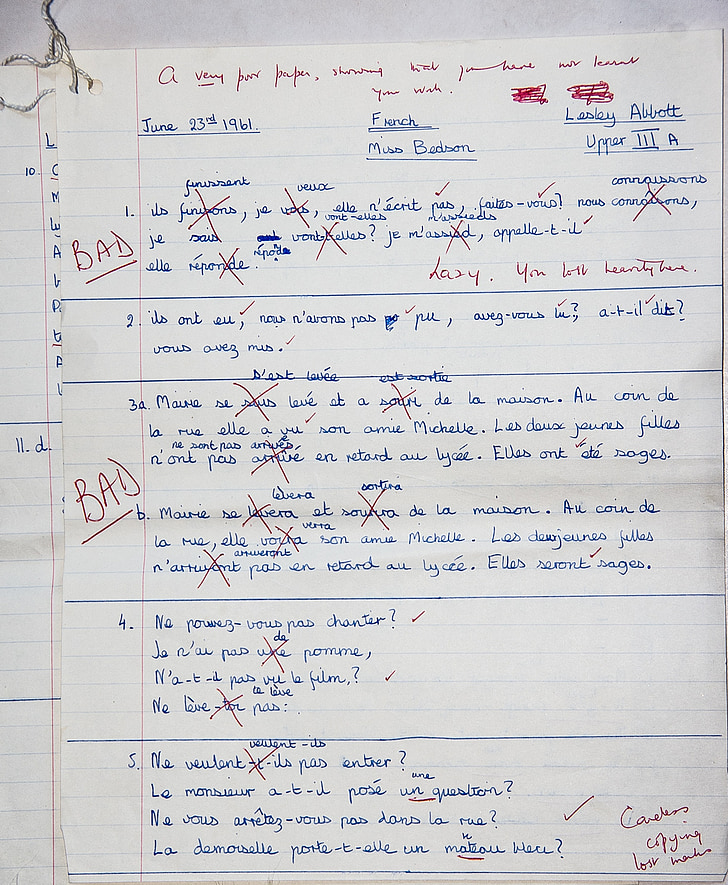 A very poor paper, showing that you have not learnt
your work.
June 23rd 1961. French Lesley Abbott
Miss Bedson Upper III A
finissent veux connaissons
1. ils finisons, je vous, elle n'écrit pas, faites-vous? nous connaîsons,
vont-elles m'assieds
je sais vont-t-elles? je m'assied, appelle-t-il
BAD
répond
elle réponde.
Lazy. You lost heavily here.
2. ils ont eu, nous n'avons pas pu, avez-vous lu?, a-t-il dit?
vous avez mis.
s'est levée est sortie
3a. Marie se sous levé et a souri de la maison. Au coin de
la rue elle a vu son amie Michelle. Les deux jeunes filles
ne sont pas arrivés
n'ont pas arrivé en retard au lycée. Elles ont été sages.
BAD
lèvera sortira
b. Marie se levera et sourira de la maison. Au coin de
verra
la rue, elle voira son amie Michelle. Les deux jeunes filles
arriveront
n'arrivont pas en retard au lycée. Elles seront sages.
4. Ne pouvez-vous pas chanter?
de
Je n'ai pas une pomme,
N'a-t-il pas vu le film,?
te lève
Ne lève-toi pas:
veulent-ils
5. Ne veulent-t-ils pas entrer?
une
Le monsieur a-t-il posé un question?
Ne vous arrêtez-vous pas dans la rue?
La demoiselle porte-t-elle un mateau bleu?
Careless
copying
lost marks
10.
11. d.